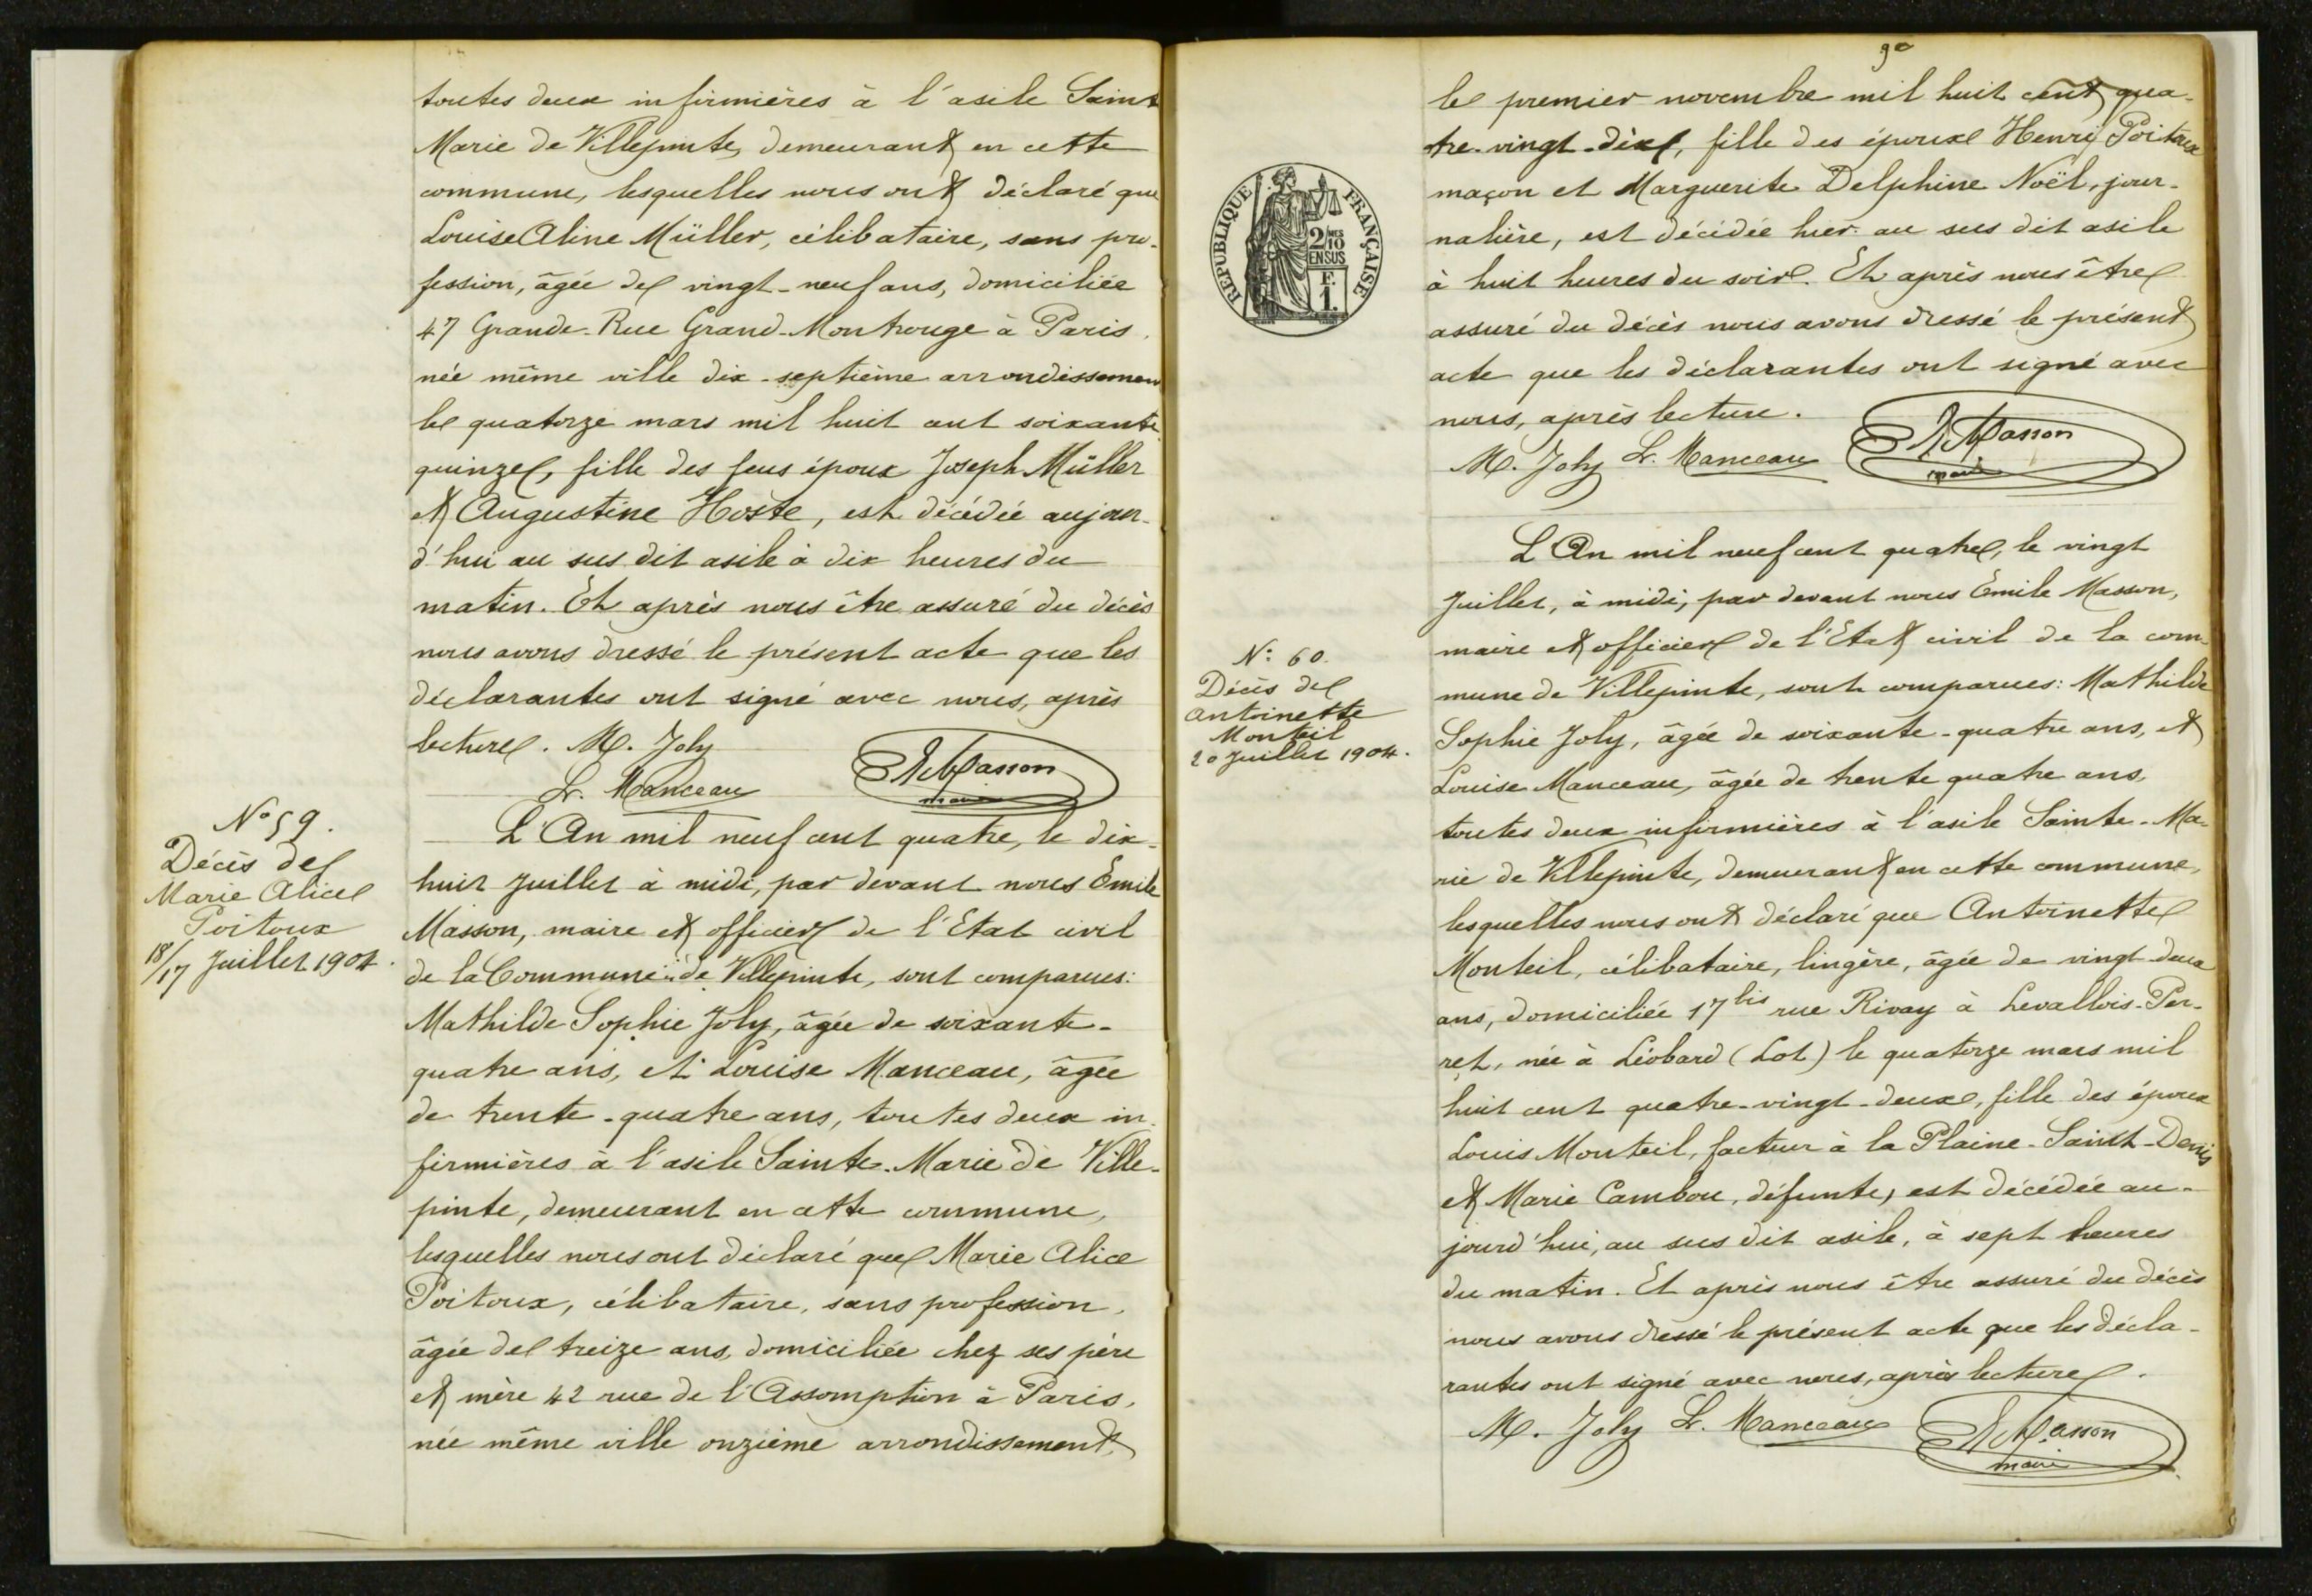 toutes deux infirmières à l'asile Sainte
Marie de Villepinte, demeurant en cette
commune, lesquelles nous ont déclaré que
Louise Aline Müller, célibataire, sans pro-
fession, âgée de vingt-neuf ans, domiciliée
47 Grande-Rue Grand-Montrouge à Paris,
née même ville dix-septième arrondissement
le quatorze mars mil huit cent soixante
quinze, fille des feus époux Joseph Müller
et Augustine Hoste, est décédée aujour-
d'hui au sus dit asile à dix heures du
matin. Et après nous être assuré du décès
nous avons dressé le présent acte que les
déclarantes ont signé avec nous, après
lecture. M. Joly
L. Manceau E. Masson
maire
N° 59.
Décès de
Marie Alice
Poitoux
18/17 Juillet 1904.
L'An mil neuf cent quatre, le dix-
huit Juillet à midi, par devant nous Emile
Masson, maire et officier de l'Etat civil
de la Commune de Villepinte, sont comparues:
Mathilde Sophie Joly, âgée de soixante-
quatre ans, et Louise Manceau, âgée
de trente-quatre ans, toutes deux in-
firmières à l'asile Sainte-Marie de Ville-
pinte, demeurant en cette commune,
lesquelles nous ont déclaré que Marie Alice
Poitoux, célibataire, sans profession,
âgée de treize ans, domiciliée chez ses père
et mère 42 rue de l'Assomption à Paris,
née même ville onzième arrondissement,
90
le premier novembre mil huit cent qua-
tre-vingt-dix, fille des époux Henri Poitoux
maçon et Marguerite Delphine Noël, jour-
nalière, est décédée hier au sus dit asile
à huit heures du soir. Et après nous être
assuré du décès nous avons dressé le présent
acte que les déclarantes ont signé avec
nous, après lecture.
M. Joly L. Manceau E. Masson
maire
RÉPUBLIQUE FRANÇAISE
2/10 MES
EN SUS
F.
1.
N° 60.
Décès de
Antoinette
Monteil
20 Juillet 1904.
L'An mil neuf cent quatre, le vingt
Juillet, à midi, par devant nous Emile Masson,
maire et officier de l'Etat civil de la com-
mune de Villepinte, sont comparues: Mathilde
Sophie Joly, âgée de soixante-quatre ans, et
Louise Manceau, âgée de trente quatre ans,
toutes deux infirmières à l'asile Sainte-Ma-
rie de Villepinte, demeurant en cette commune,
lesquelles nous ont déclaré que Antoinette
Monteil, célibataire, lingère, âgée de vingt deux
ans, domiciliée 17 bis rue Rivay à Levallois-Per-
ret, née à Léobard (Lot) le quatorze mars mil
huit cent quatre-vingt-deux, fille des époux
Louis Monteil, facteur à la Plaine-Saint-Denis
et Marie Cambou, défunte, est décédée au-
jourd'hui, au sus dit asile, à sept heures
du matin. Et après nous être assuré du décès
nous avons dressé le présent acte que les décla-
rantes ont signé avec nous, après lecture.
M. Joly L. Manceau E. Masson
maire